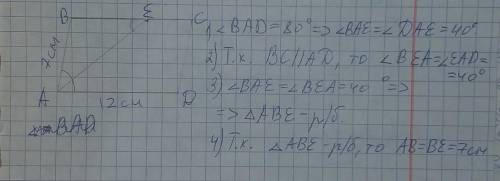 B E C
7см
A 12см D
∠BAD
1) ∠BAD=80°=>∠BAE=∠DAE=40°
2) Т.к. BC||AD, то ∠BEA=∠EAD=
=40°
3) ∠BAE=∠BEA=40°=>
=> △ABE-р/б.
4) Т.к. △ABE-р/б, то AB=BE=7см